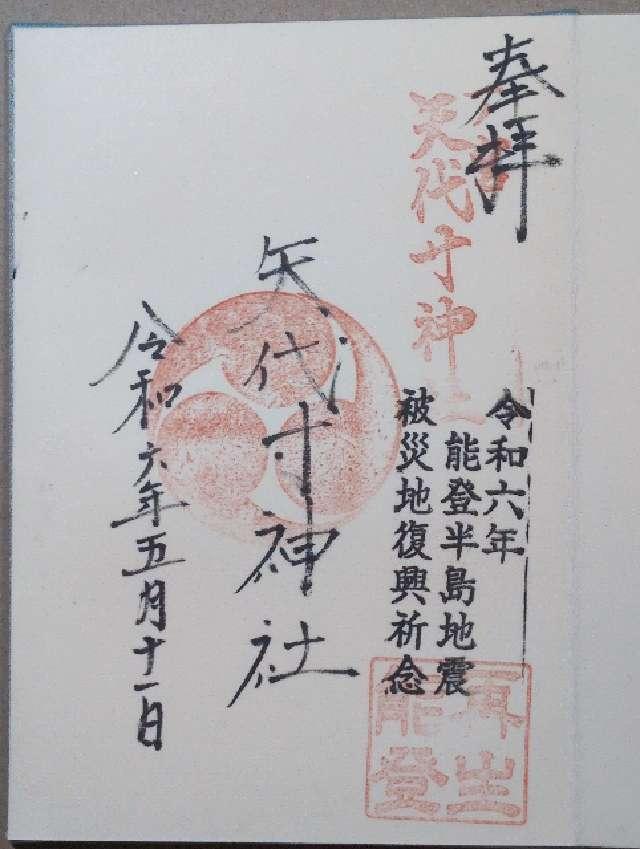 奉拝
矢代寸神社
令和六年
能登半島地震
被災地復興祈念
再生
能登
矢代寸神社
令和六年五月十一日